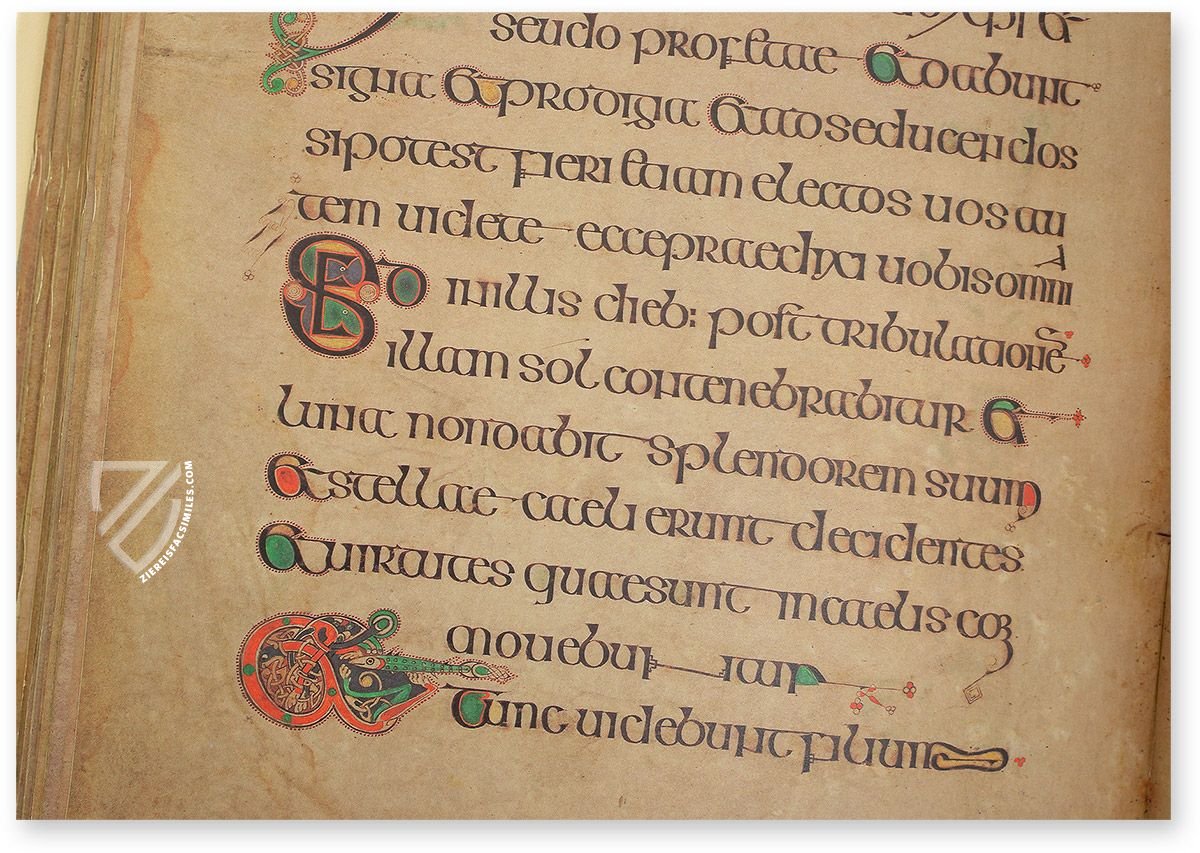 seudo profetae & dabunt
signa & prodigia & ad seducendos
si potest fieri etiam electos uos au
tem uidete ecce praedixi uobis omni
a
Sed in illis dieb: post tribulatione
illam sol contenebrabitur &
luna non dabit splendorem suum
& stellae caeli erunt decidentes
& uirtutes quae sunt in caelis co
mouebuntur
Et tunc uidebunt filium
ZIEREISFACSIMILES.COM